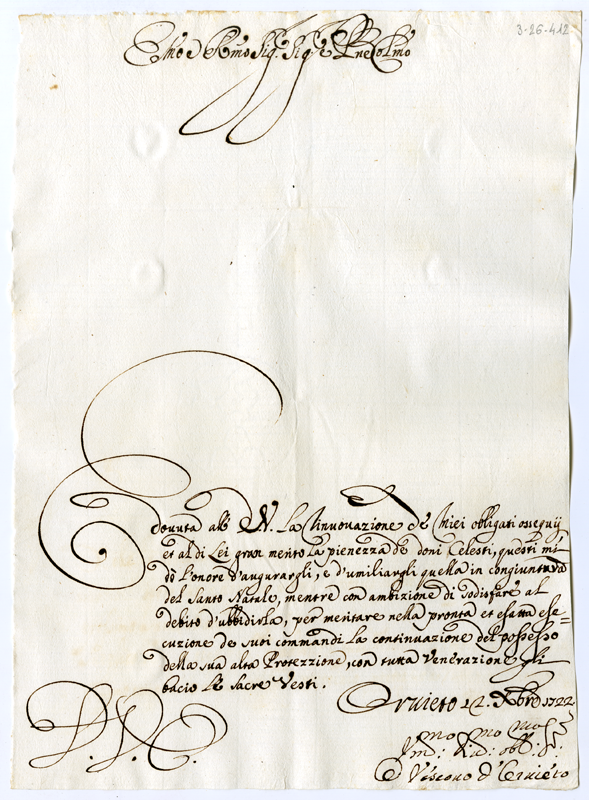 3-26-412
Emo e Rmo Sig. Sig. e Pne Colmo
E dovuta all' E. V. La rinuovazione de miei obligati ossequij
et al di Lei gran merito la pienezza de doni Celesti, questi mi
dò l'onore d'augurargli, e d'umiliargli quella in congiuntura
del Santo Natale, mentre con ambizione di sodisfare al
debito d'ubbidirla, per meritare nella pronta et esatta ese=
cuzione de suoi commandi La continuazione del possesso
della sua alta Protezzione, con tutta Venerazione gli
bacio le Sacre Vesti.
Orvieto 12. Xbre 1722
mo mo mo
Vmo: : obl: S:
Il Vescovo d'Orvieto